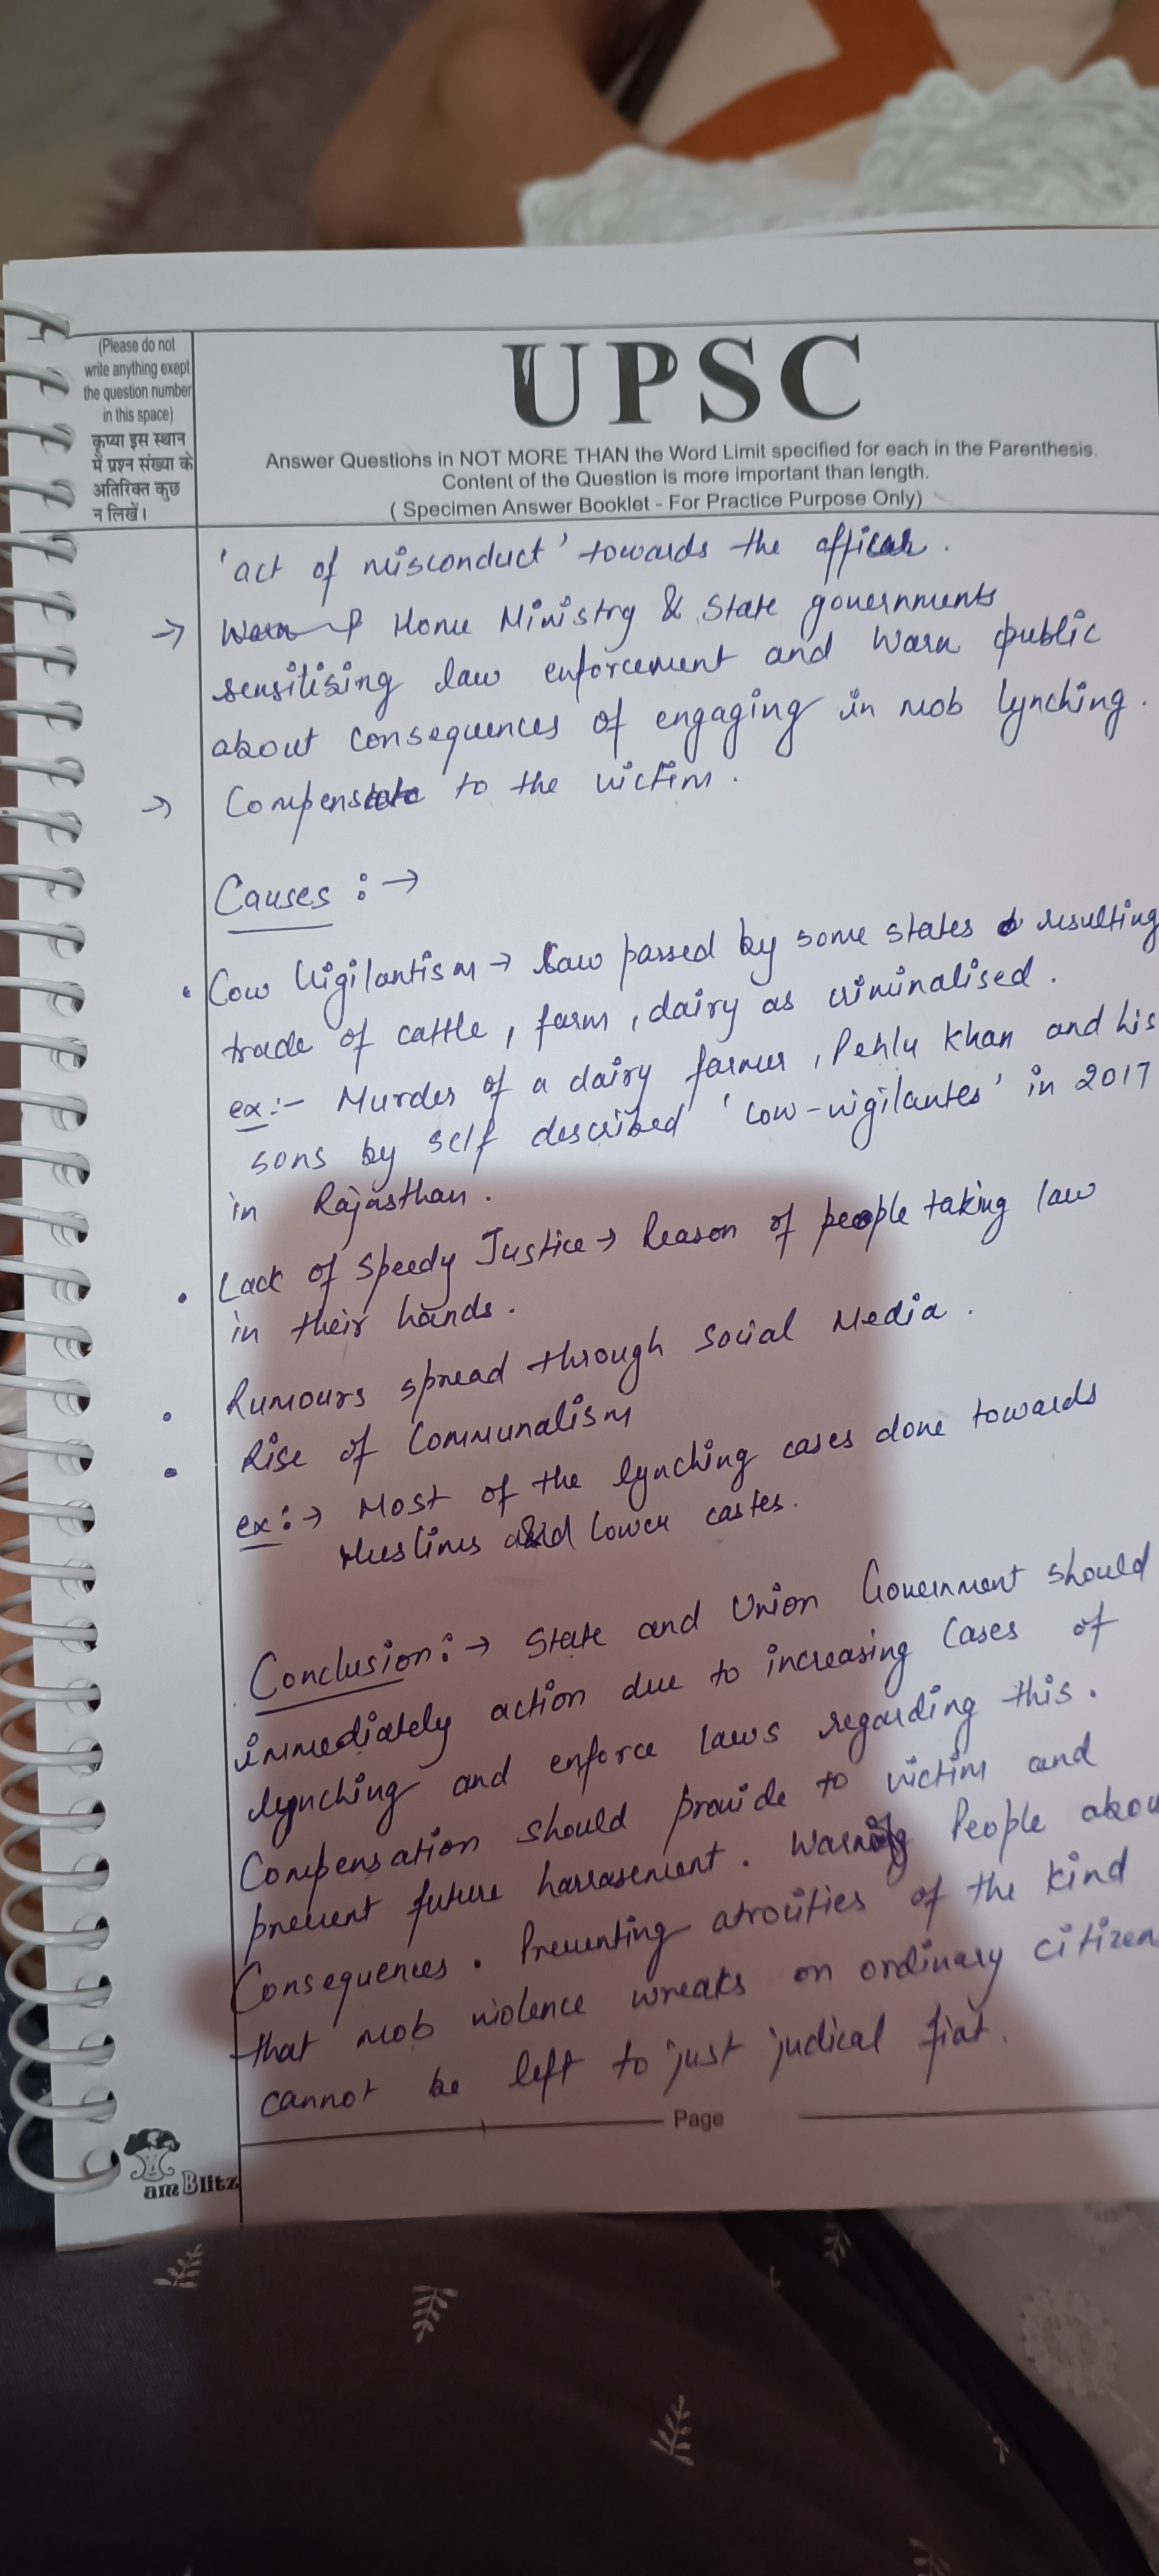 (Please do not
write anything exept
the question number
in this space)
कृप्या इस स्थान
में प्रश्न संख्या के
अतिरिक्त कुछ
न लिखें।
UPSC
Answer Questions in NOT MORE THAN the Word Limit specified for each in the Parenthesis.
Content of the Question is more important than length.
( Specimen Answer Booklet - For Practice Purpose Only)
'act of misconduct' towards the officer.
→ Home Ministry & State governments
sensitising law enforcement and warn public
about consequences of engaging in mob lynching.
→ Compensate to the victim.
Causes :→
• Cow Vigilantism → Law passed by some states resulting
trade of cattle, farm, dairy as criminalised.
ex:- Murder of a dairy farmer, Pehlu Khan and his
sons by self described 'cow-vigilantes' in 2017
in Rajasthan.
• Lack of Speedy Justice → Reason of people taking law
in their hands.
• Rumours spread through Social Media.
• Rise of Communalism
ex:→ Most of the lynching cases done towards
Muslims and lower castes.
Conclusion:→ State and Union Government should
immediately action due to increasing cases of
lynching and enforce laws regarding this.
Compensation should provide to victim and
prevent future harrasement. Warning People abou
Consequences. Preventing atrocities of the kind
that mob violence wreaks on ordinary citizen
cannot be left to just judical fiat.
Page
am Blitz